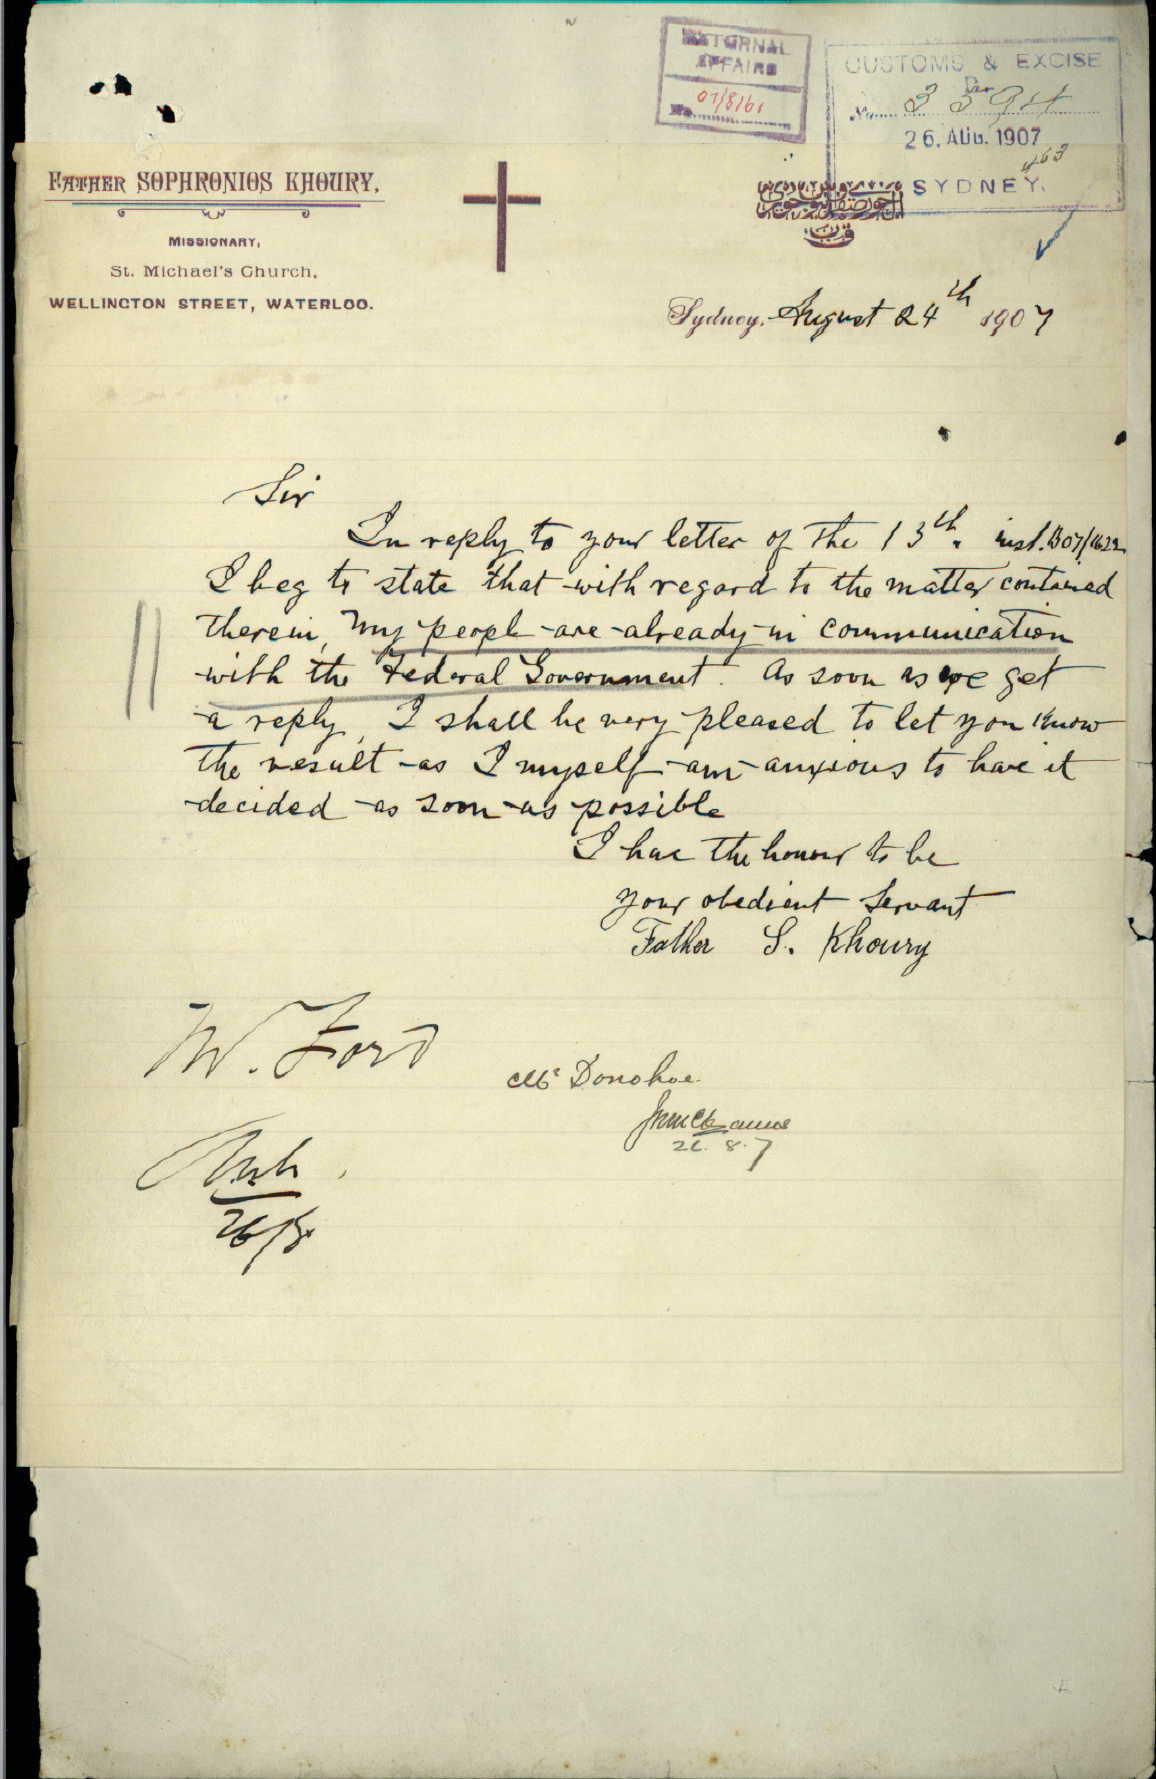 EXTERNAL
AFFAIRS
No. 07/8161
CUSTOMS & EXCISE
No. 3394
26. AUG. 1907
SYDNEY.
FATHER SOPHRONIOS KHOURY,
MISSIONARY,
St. Michael's Church,
WELLINGTON STREET, WATERLOO.
Sydney, August 24th 1907
Sir
In reply to your letter of the 13th. inst. B07/1622
I beg to state that with regard to the matter contained
therein, my people are already in communication
with the Federal Government. As soon as we get
a reply, I shall be very pleased to let you know
the result as I myself am anxious to have it
decided as soon as possible
I have the honour to be
your obedient Servant
Father S. Khoury
W. Ford
Mr Donohoe
26.8.7
26/8